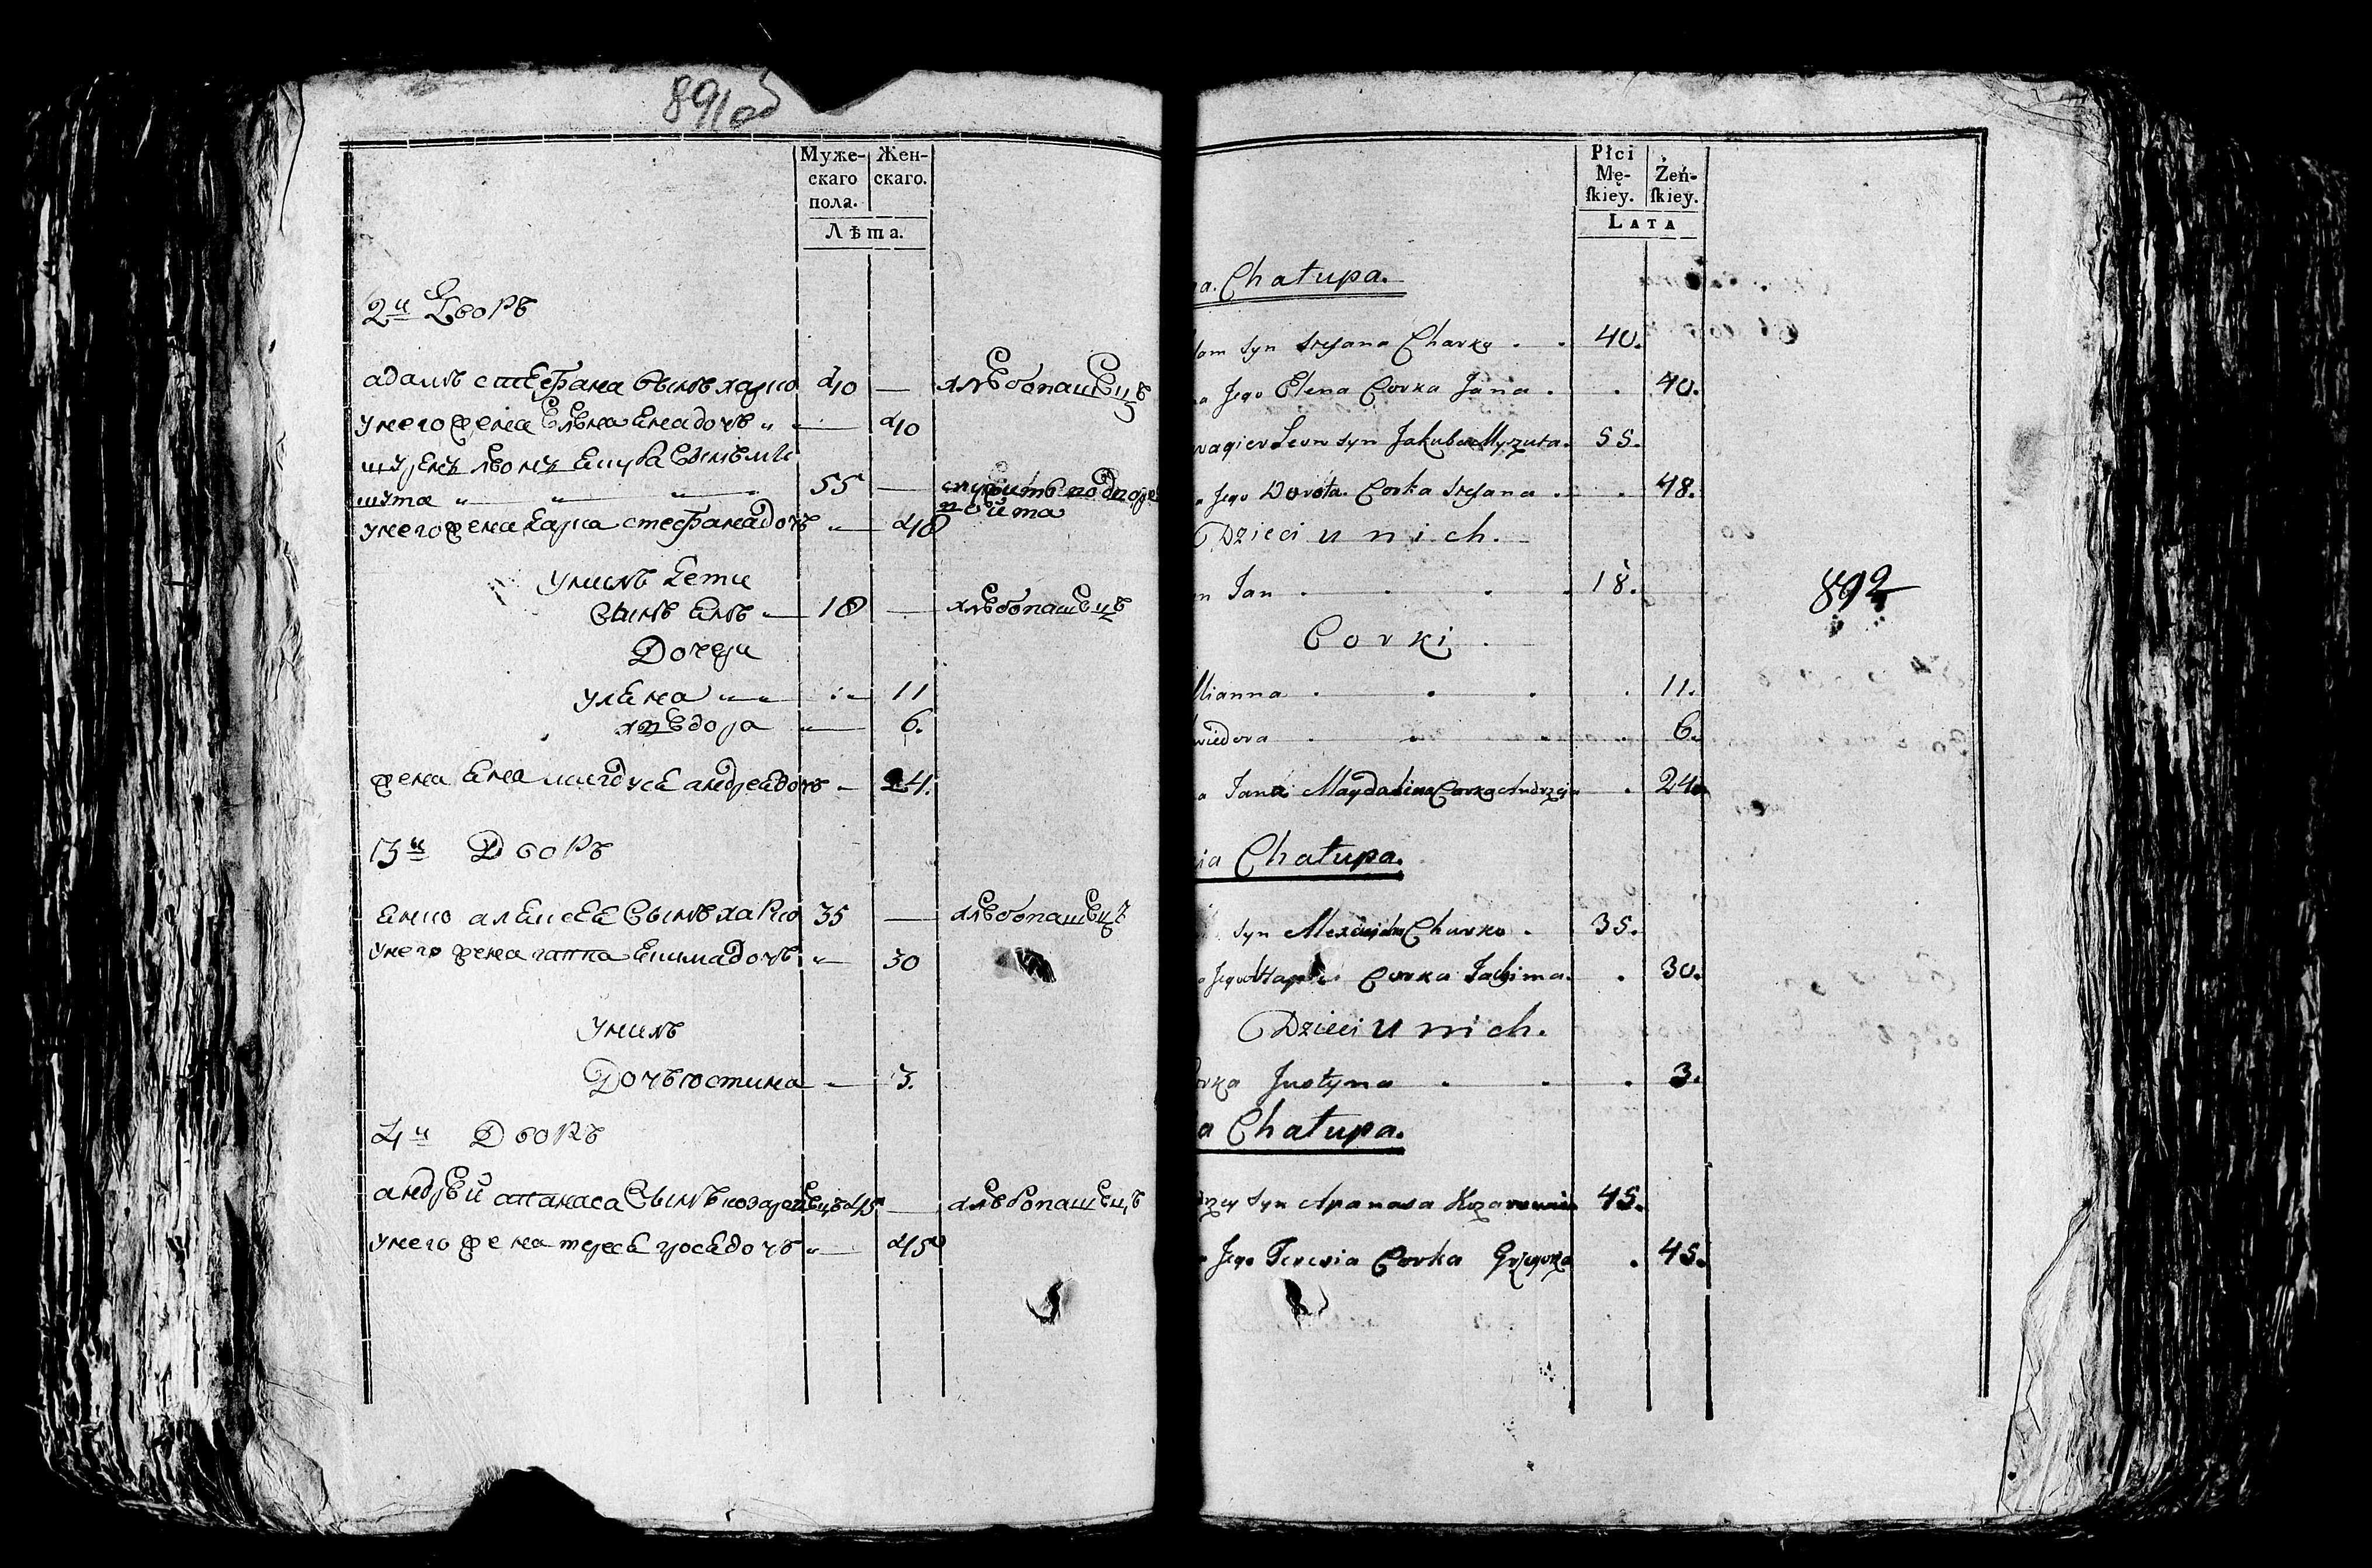 891об
Муже-
скаго
пола.
Жен-
скаго.
Лѣта.
2й Дворъ
адамъ стефана сынъ харко 40 — хлѣбопашецъ
унего жена Елѣна Ена дочь „ — 40
шурекъ лѣонъ Енуба сынъ ми
шута „ „ „ 55 —
унего жена стефана дочь „ — 48
унихъ дети
Сынъ Енъ „ 18 — хлѣбопашецъ
Дочери
улена „ „ „ 11
хведора „ 6.
жена Ена магдуся андрея дочь „ 24.
3й Дворъ
Енко алексея Сынъ харко 35 — хлѣбопашецъ
унего жена гапка Екима дочь „ — 30
унихъ
Дочь юстина „ — 3.
4й Дворъ
андрѣй апанаса Сынъ козаревецъ 45 — хлѣбопашецъ
унего жена тереса дочь „ — 45
Płci
Mę-
ſkiey.
Żeń-
ſkiey.
LATA
a. Chałupa.
dam syn Stefana Charko . . 40.
a Jego Elena Corka Jana . . 40.
wagier Leon syn Jakuba Myszuta. 55.
a Jego Dorota Corka Stefana . . 48.
Dzieci u nich.
n Jan . . . . 18.
Corki
llianna . . . . 11.
wiedora . . . . 6.
a Jana Magdalena Corka Andrzeja . 24.
ia Chałupa.
syn Alexieja Charko . 35.
a Jego Hapka Corka Jachima. . 30.
Dzieci u nich.
orka Justyna . . . 3.
a Chałupa.
drzey syn Apanasa 45.
a Jego Teresia Corka . 45.
892